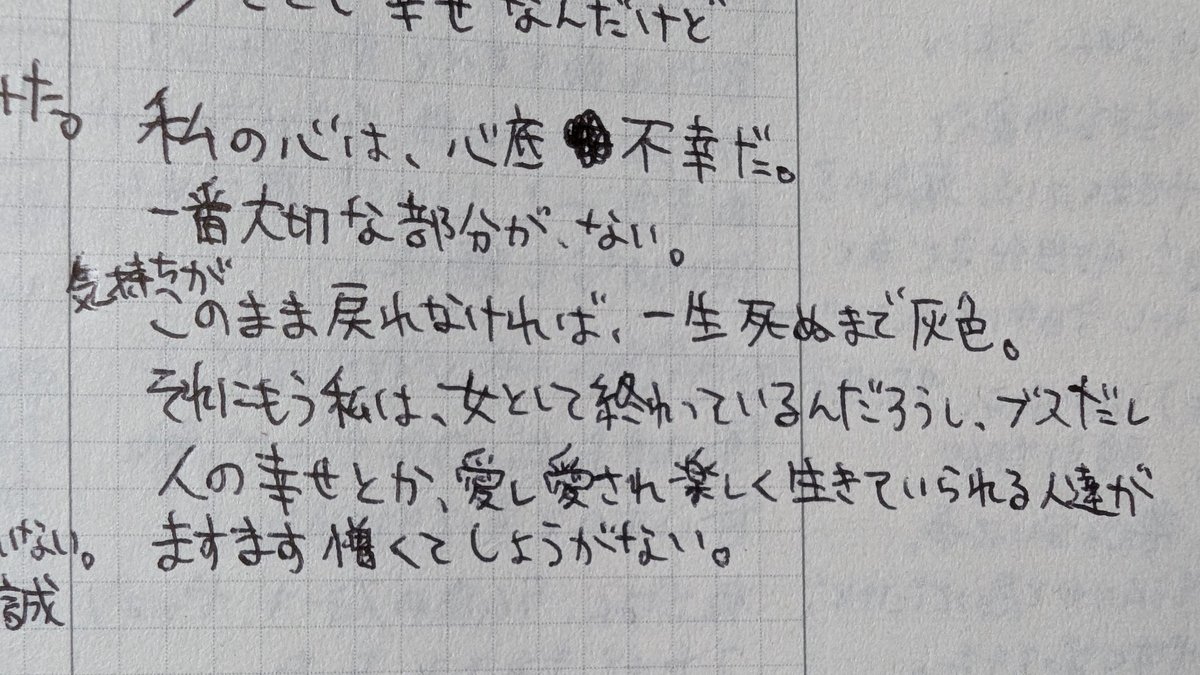 幸せなんだけど
た。
私の心は、心底不幸だ。
一番大切な部分が、ない。
気持ちが
このまま戻れなければ、一生死ぬまで灰色。
それにもう私は、女として終わっているんだろうし、ブスだし
人の幸せとか、愛し愛され楽しく生きていられる人達が
ますます憎くてしょうがない。
いけない。
誠